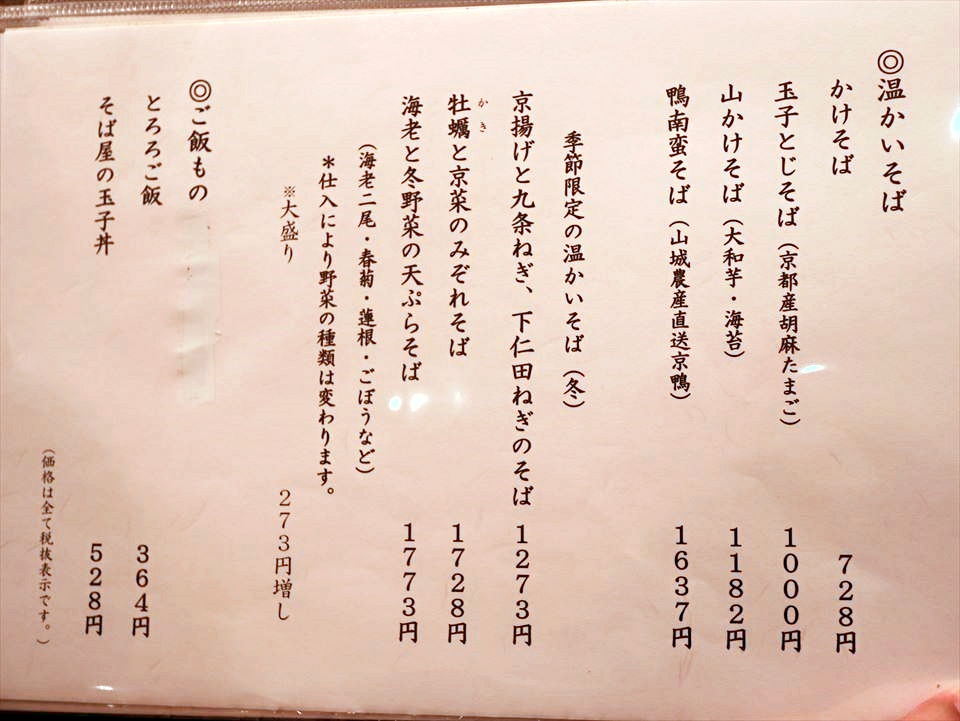 ◎温かいそば
かけそば 728円
玉子とじそば（京都産胡麻たまご） 1000円
山かけそば（大和芋・海苔） 1182円
鴨南蛮そば（山城農産直送京鴨） 1637円
季節限定の温かいそば（冬）
京揚げと九条ねぎ、下仁田ねぎのそば 1273円
かき
牡蠣と京菜のみぞれそば 1728円
海老と冬野菜の天ぷらそば 1773円
（海老二尾・春菊・蓮根・ごぼうなど）
＊仕入により野菜の種類は変わります。
※大盛り 273円増し
◎ご飯もの
とろろご飯 364円
そば屋の玉子丼 528円
（価格は全て税抜表示です。）